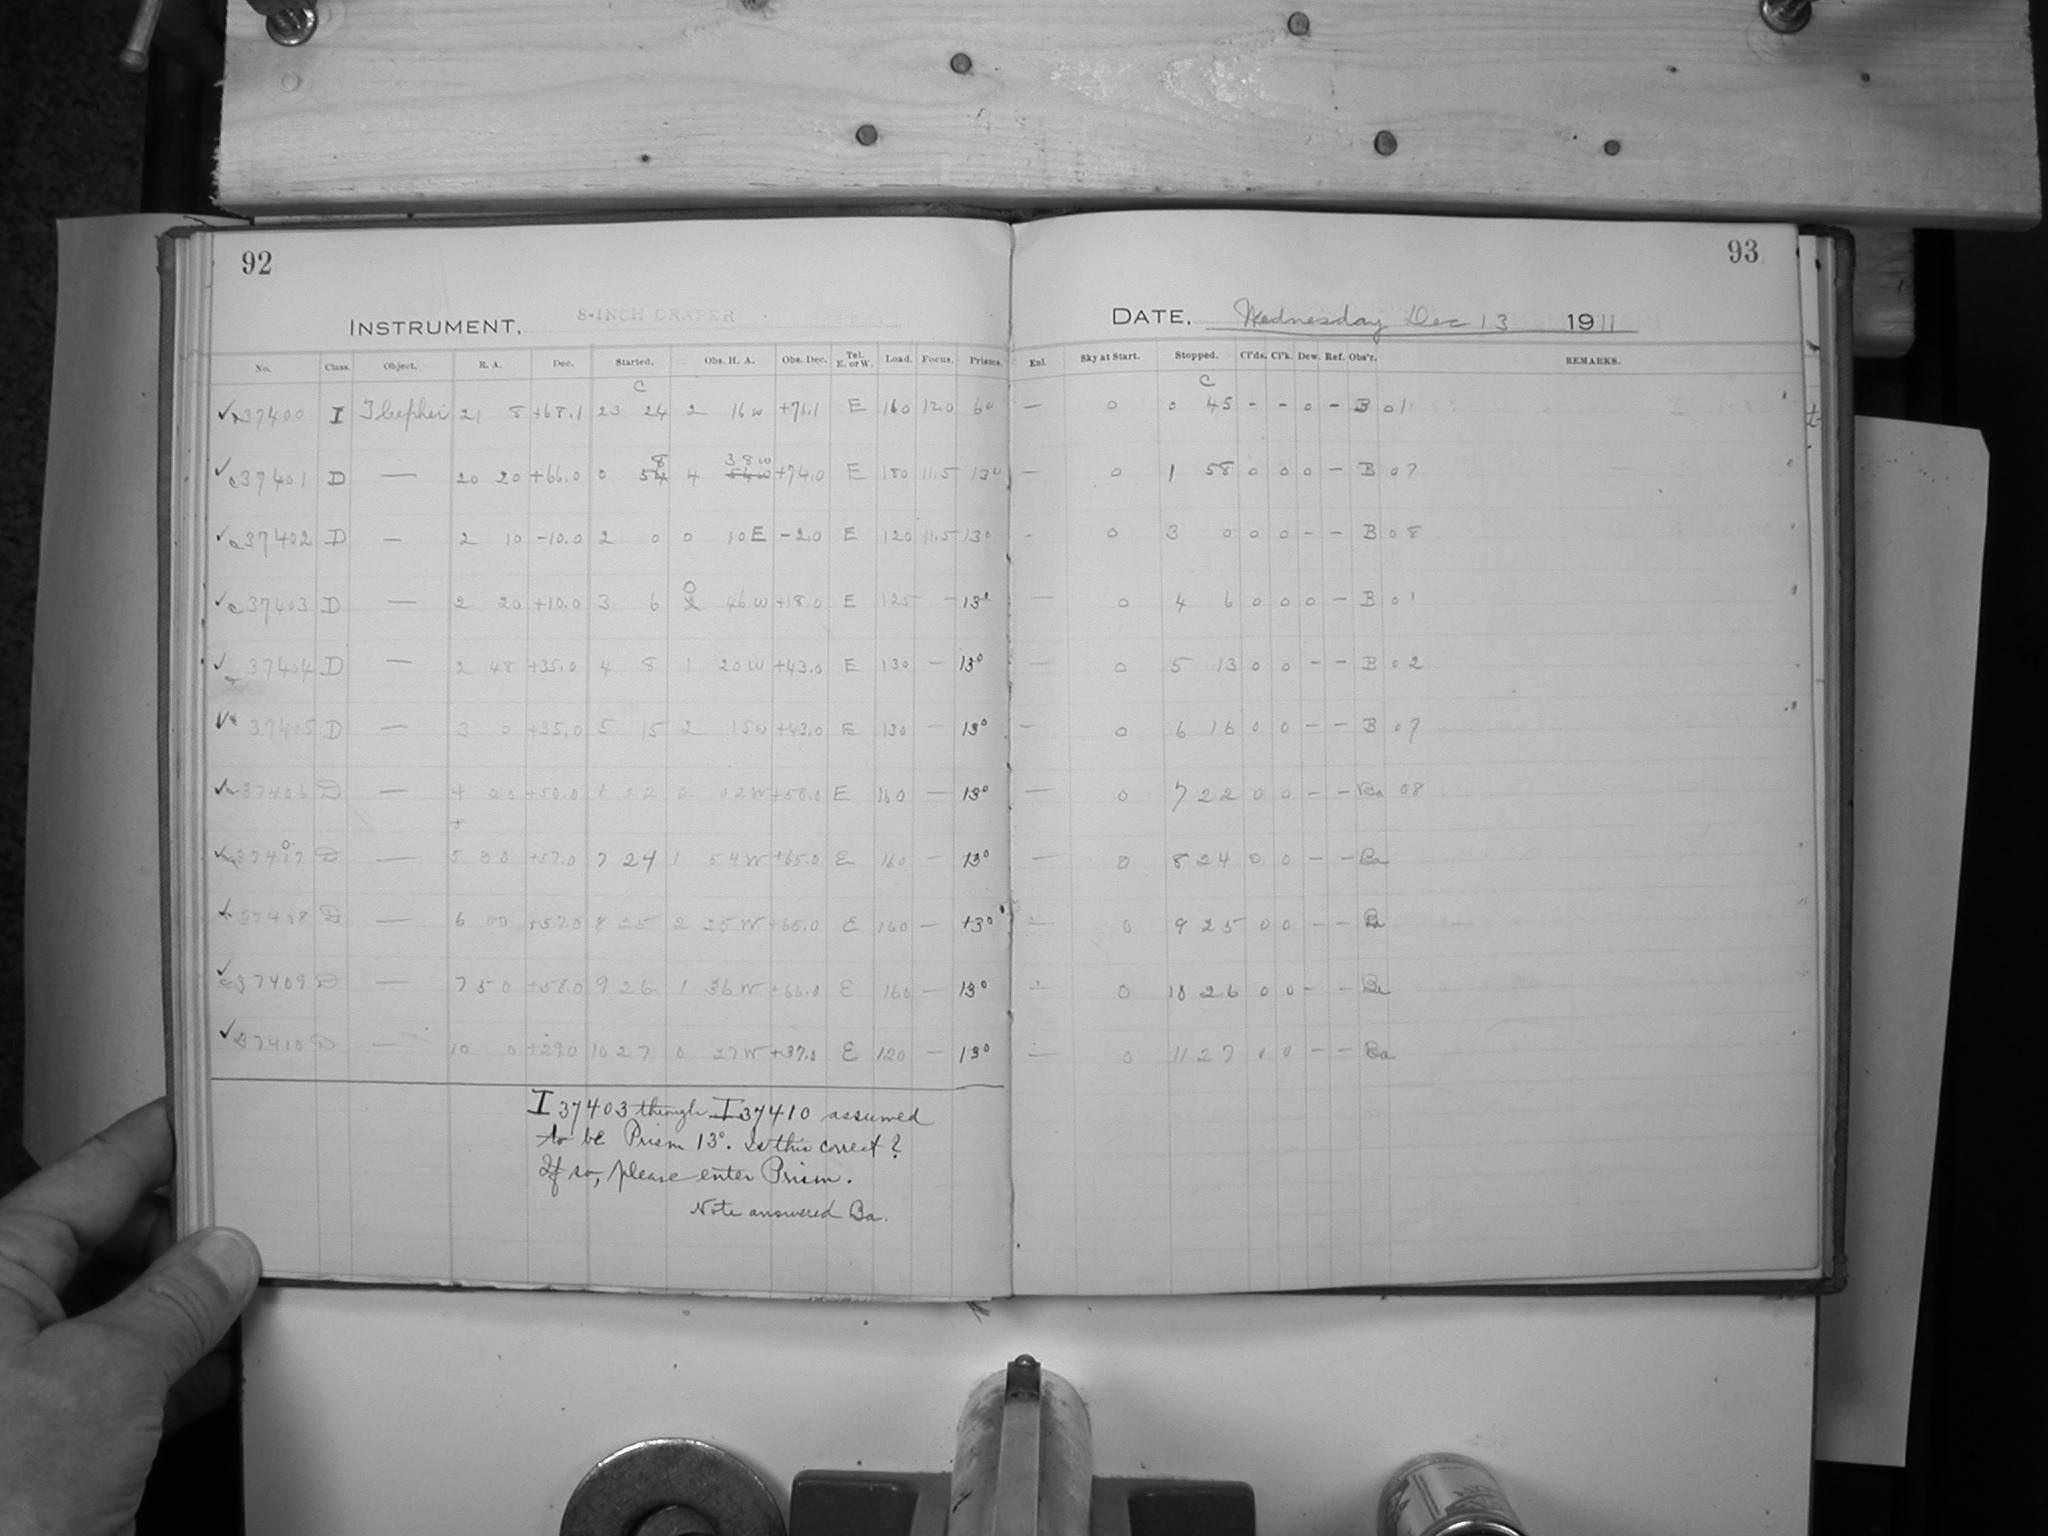 92
93
INSTRUMENT, 8-INCH DRAPER
DATE, Wednesday Dec 13 1911
No. Class. Object. R. A. Dec. Started. Obs. H. A. Obs. Dec. Tel. E. or W. Load. Focus. Prisms. Enl. Sky at Start. Stopped. Cl'ds. Cl'k. Dew. Ref. Obs'r. REMARKS.
C C
✓ 37400 I T Cephei 21 8 +68.1 23 24 2 16 W +71.1 E 160 12.0 6° — 0 0 45 - - 0 - B 01
✓ 37401 D — 20 20 +66.0 0 58 4 38 W +74.0 E 180 11.5 13° — 0 1 58 0 0 0 — B 07
✓ 37402 D — 2 10 -10.0 2 0 0 10 E -2.0 E 120 11.5 13° - 0 3 0 0 0 - - B 08
✓ 37403 D — 2 20 +10.0 3 6 0 46 W +18.0 E 125 - 13° — 0 4 6 0 0 0 — B 01
✓ 37404 D — 2 48 +35.0 4 8 1 20 W +43.0 E 130 — 13° — 0 5 13 0 0 - - B 02
✓ 37405 D — 3 0 +35.0 5 15 2 15 W +43.0 E 130 — 13° — 0 6 16 0 0 - - B 07
✓ 37406 D — 4 20 +50.0 6 22 2 02 W +58.0 E 160 — 13° — 0 7 22 0 0 - - Ba 08
✓ 37407 D — 5 30 +57.0 7 24 1 54 W +65.0 E 160 — 13° — 0 8 24 0 0 - - Ba
37408 D — 6 00 +57.0 8 25 2 25 W +65.0 E 160 — 13° — 0 9 25 0 0 - - Ba
✓ 37409 D — 7 50 +58.0 9 26 1 36 W +66.0 E 160 — 13° — 0 10 26 0 0 - - Ba
✓ 37410 D — 10 0 +29.0 10 27 0 27 W +37.0 E 120 — 13° — 0 11 27 0 0 - - Ba
I 37403 through I 37410 assumed
to be Prism 13°. Is this correct?
If so, please enter Prism.
Note answered Ba.